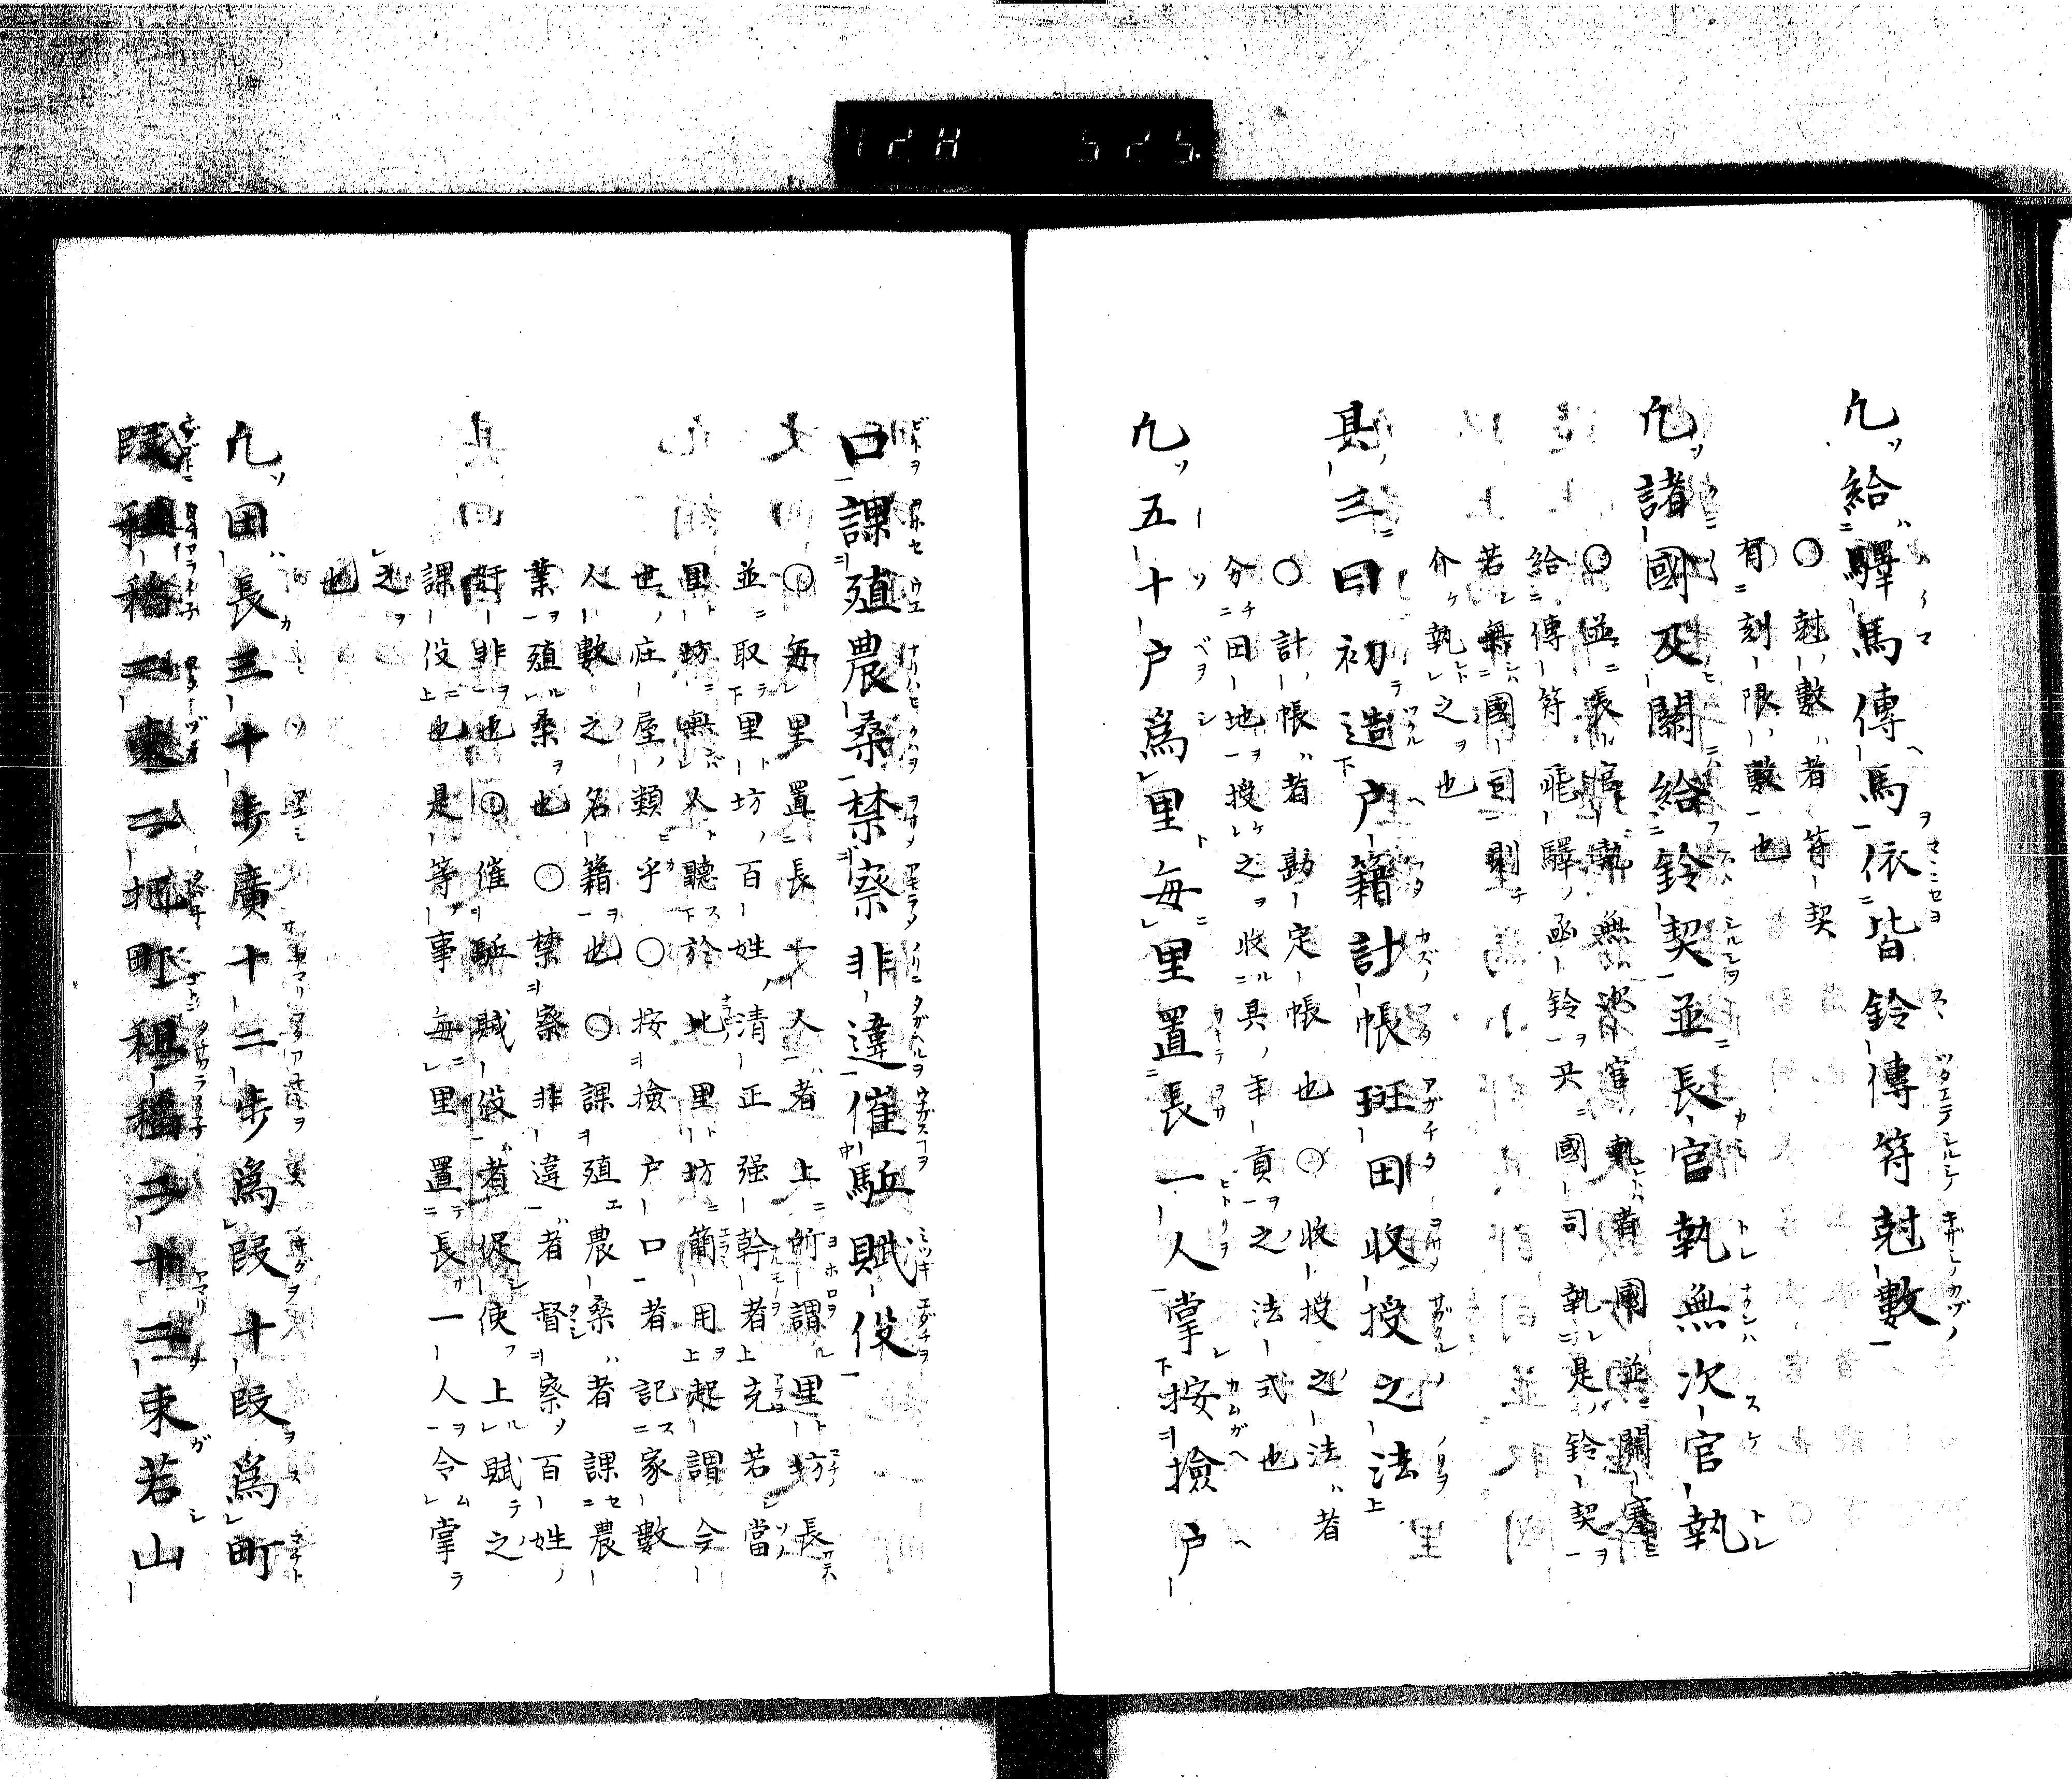 凢給驛馬傳馬依皆鈴傳符尅數
○尅數者符契
有刻限數也
凢諸國及關給鈴契並長官執無次官執
○並長官執無次官執者國並關塞
給傳符飛驛函鈴共國司執是鈴契
若無國司
介執之也
其三曰初造戸籍計帳班田收授之法
○計帳者勘定帳也○收授之法者
分田地授之收其年貢之法式也
凢五十戸爲里毎里置長一人掌按檢戸
口課殖農桑禁察非違催駈賦役
○毎里置長一人者上所謂里坊長
並取里坊百姓清正强幹者充若當
里坊無人聽於比里坊簡用起謂今
世庄屋類乎○按檢戸口者記家數
人數之名籍也○課殖農桑者課農
業殖桑也○禁察非違者督察百姓
奸非也○催駈賦役者促使上賦之
課役也是等事毎里置長一人令掌
之
也
凢田長三十歩廣十二歩爲段十段爲町
段租稻二束二把町租稻二十二束若山